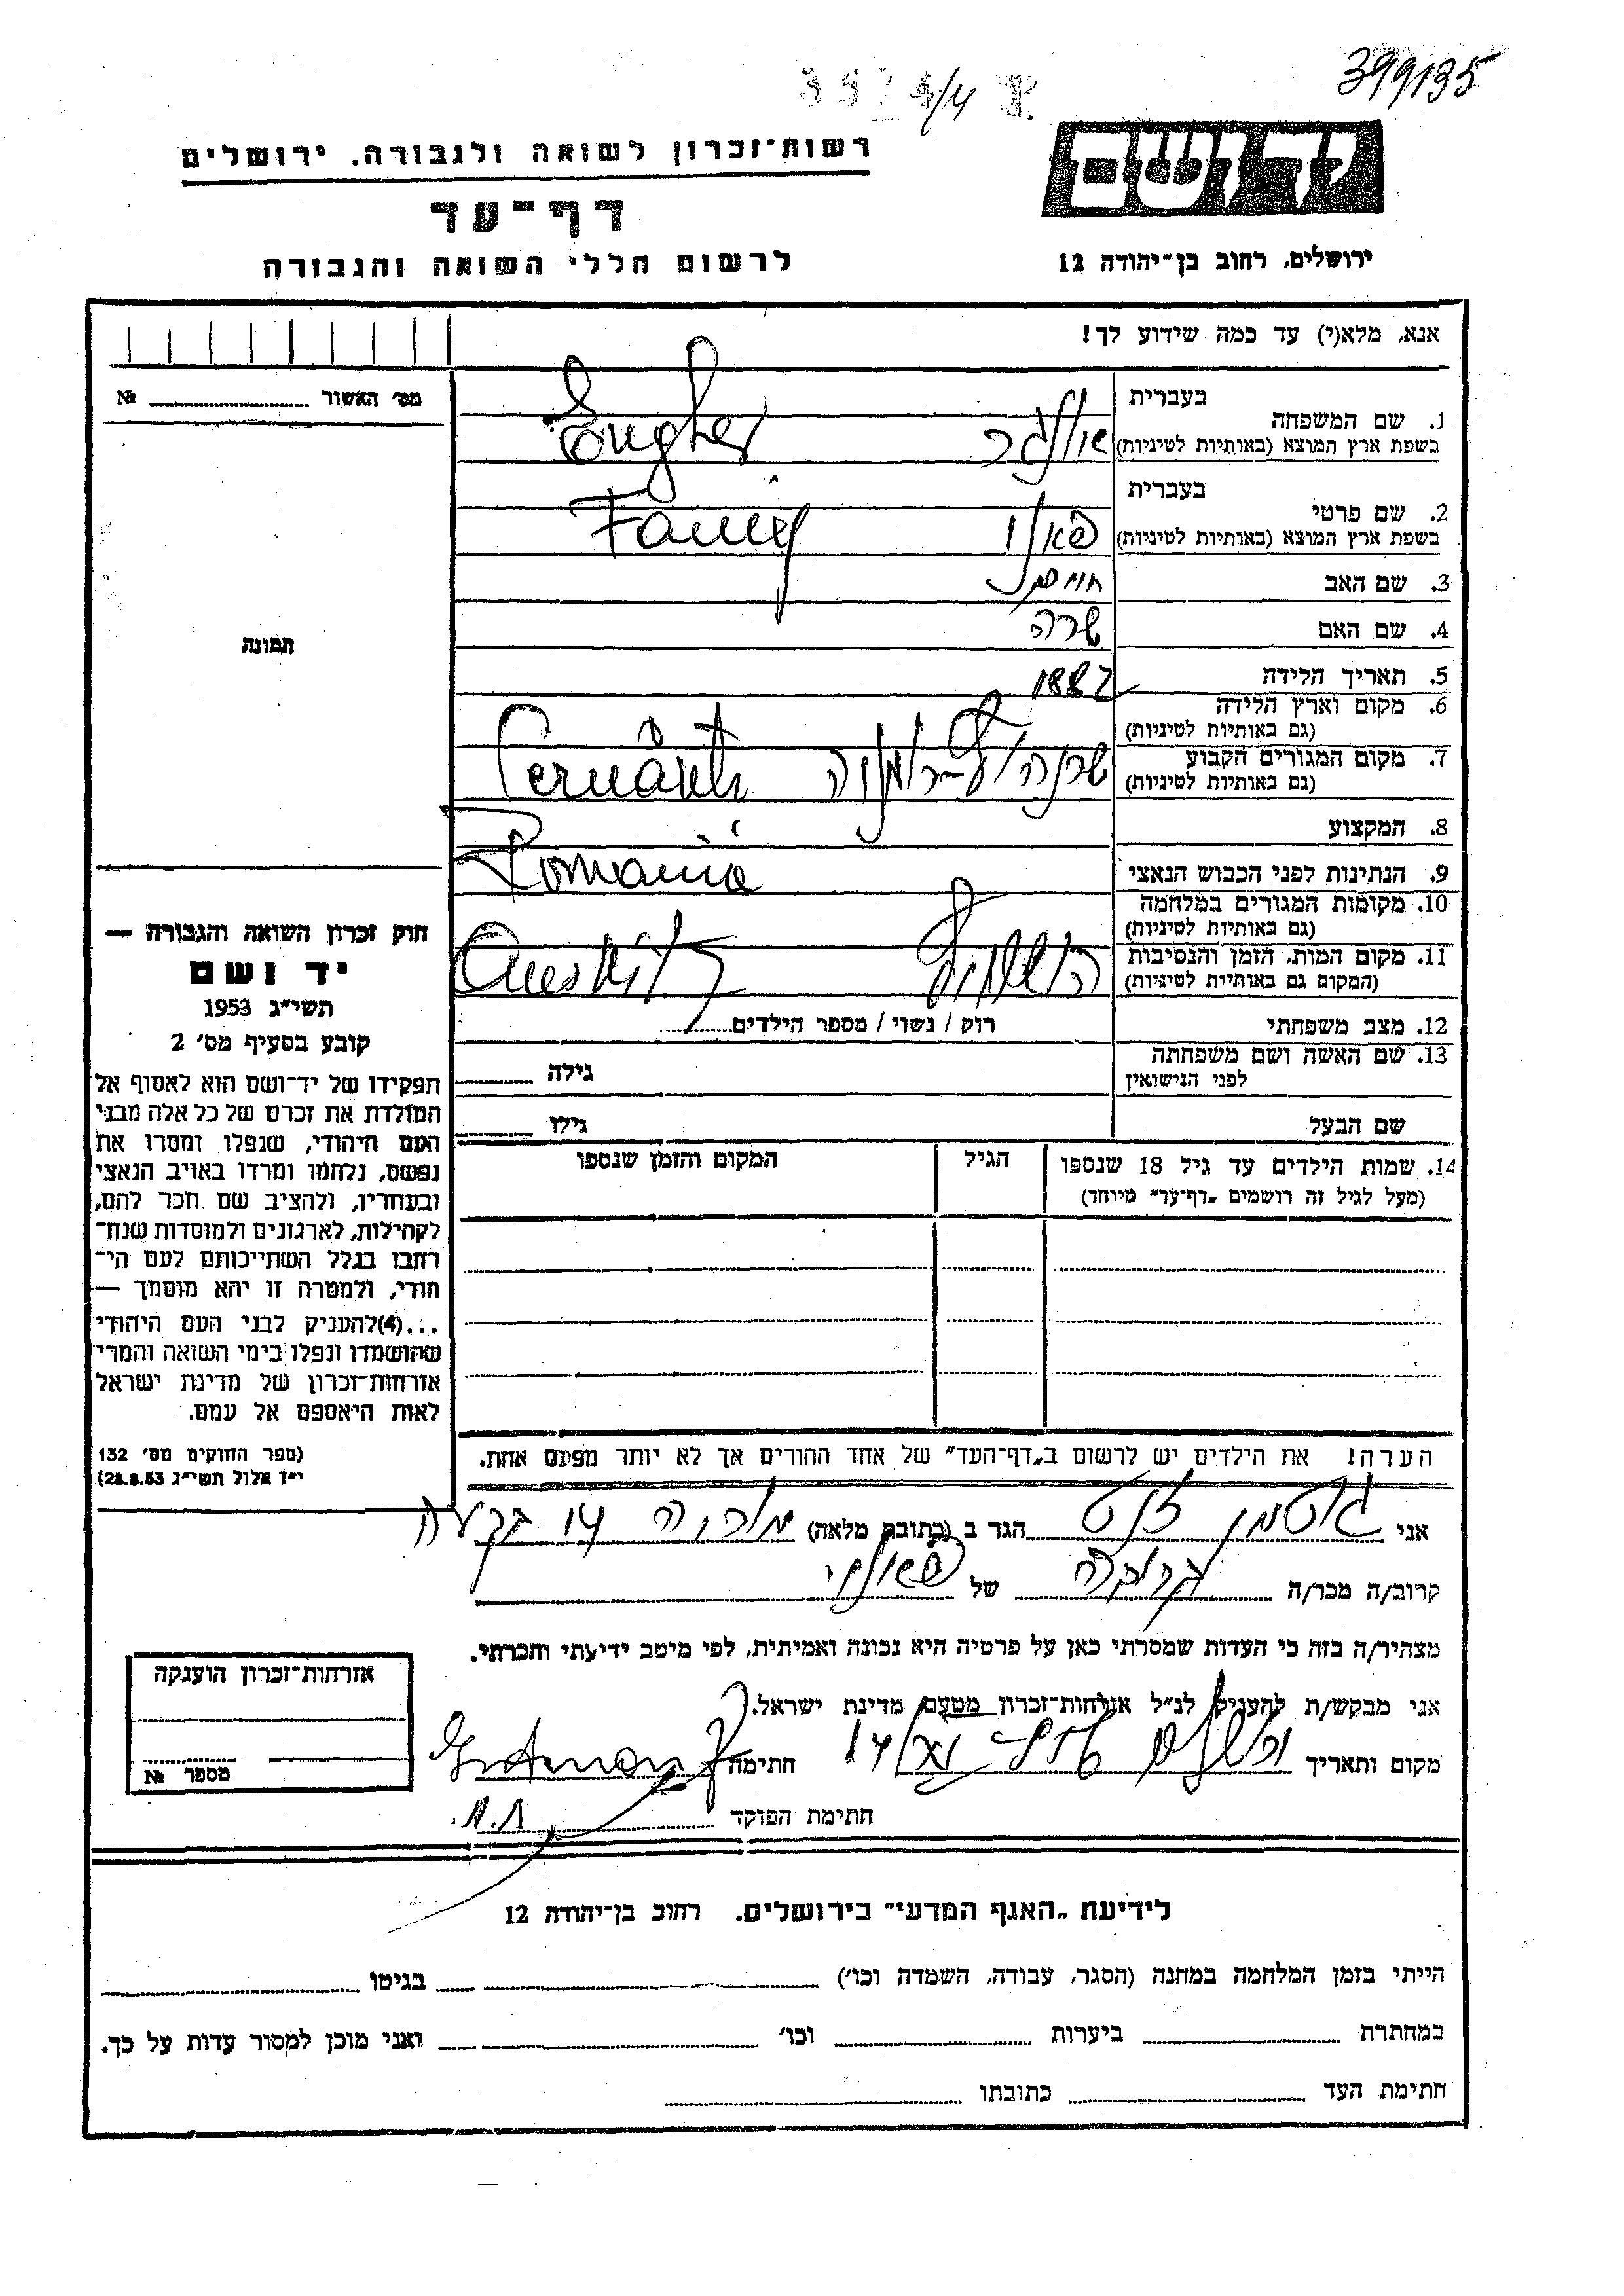 399135
רשות-זכרון לשואה ולגבורה. ירושלים
דף-עד
לרשום חללי השואה והגבורה
ירושלים, רחוב בן-יהודה 12
אנא, מלא(י) עד כמה שידוע לך!
מס׳ האשור № 
1. שם המשפחה
בעברית
בשפת ארץ המוצא (באותיות לטיניות)
2. שם פרטי
בעברית
בשפת ארץ המוצא (באותיות לטיניות)
Fanny
3. שם האב
4. שם האם שרה
5. תאריך הלידה 1882
6. מקום וארץ הלידה
(גם באותיות לטיניות)
7. מקום המגורים הקבוע
(גם באותיות לטיניות)
Cernăuti
8. המקצוע
9. הנתינות לפני הכבוש הנאצי
Romania
10. מקומות המגורים במלחמה
(גם באותיות לטיניות)
11. מקום המות, הזמן והנסיבות
(המקום גם באותיות לטיניות)
12. מצב משפחתי רוק / נשוי / מספר הילדים
13. שם האשה ושם משפחתה
לפני הנישואין
גילה
שם הבעל
גילו
14. שמות הילדים עד גיל 18 שנספו
(מעל לגיל זה רושמים „דף-עד" מיוחד)
הגיל
המקום והזמן שנספו
תמונה
חוק זכרון השואה והגבורה —
יד ושם
תשי״ג 1953
קובע בסעיף מס׳ 2
תפקידו של יד-ושם הוא לאסוף אל
המולדת את זכרם של כל אלה מבני
העם היהודי, שנפלו ומסרו את
נפשם, נלחמו ומרדו באויב הנאצי
ובעוזריו, ולהציב שם וזכר להם,
לקהילות, לארגונים ולמוסדות שנח-
רבו בגלל השתייכותם לעם הי-
הודי, ולמטרה זו יהא מוסמך —
...(4)להעניק לבני העם היהודי
שהושמדו ונפלו בימי השואה והמרי
אזרחות-זכרון של מדינת ישראל
לאות היאספם אל עמם.
(ספר החוקים מס׳ 132
י״ז אלול תשי״ג 28.8.53)
הערה! את הילדים יש לרשום ב„דף-העד" של אחד ההורים אך לא יותר מפעם אחת.
אני גוטמן הגר ב (כתובת מלאה)
קרוב/ה מכר/ה של
מצהיר/ה בזה כי העדות שמסרתי כאן על פרטיה היא נכונה ואמיתית, לפי מיטב ידיעתי והכרתי.
אני מבקש/ת להעניק לנ״ל אזרחות-זכרון מטעם מדינת ישראל.
מקום ותאריך חתימה
חתימת הפוקד
אזרחות-זכרון הוענקה
מספר №
לידיעת „האגף המדעי" בירושלים. רחוב בן-יהודה 12
הייתי בזמן המלחמה במחנה (הסגר, עבודה, השמדה וכו׳) בגיטו
במחתרת ביערות וכו׳ ואני מוכן למסור עדות על כך.
חתימת העד כתובתו